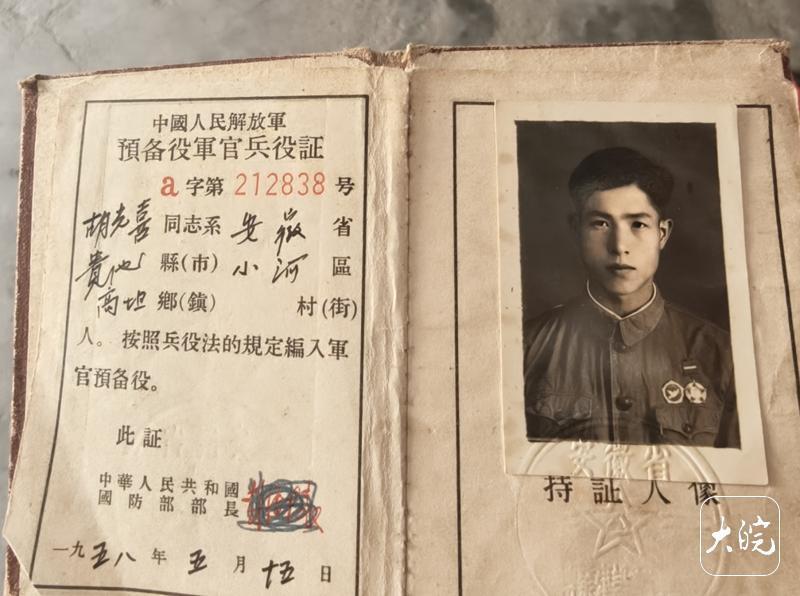 中國人民解放軍
預备役軍官兵役証
a字第 212838 号
胡光喜 同志系 安徽 省
貴池 縣(市) 小河 區
高坦 鄉(鎮) 村(街)
人。按照兵役法的規定編入軍
官預备役。
此証
中華人民共和國
國防部部長
一九五八年五月十五日
持証人像
安徽省
大皖